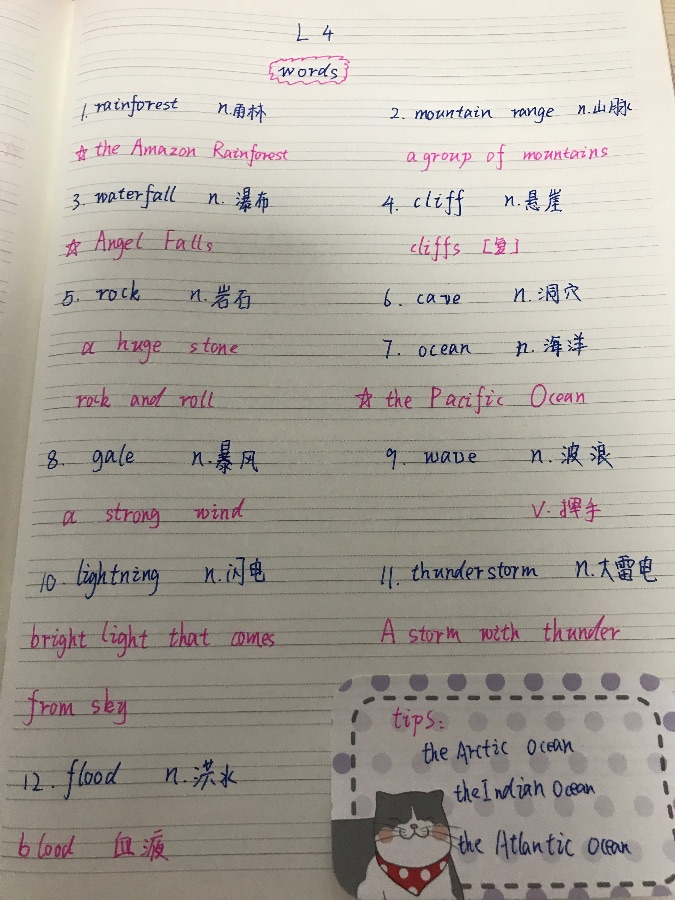 L 4
words
1. rainforest n.雨林 2. mountain range n.山脉
☆ the Amazon Rainforest a group of mountains
3. waterfall n. 瀑布 4. cliff n.悬崖
☆ Angel Falls cliffs [复]
5. rock n.岩石 6. cave n.洞穴
a huge stone 7. ocean n.海洋
rock and roll ☆ the Pacific Ocean
8. gale n.暴风 9. wave n.波浪
a strong wind v.挥手
10. lightning n.闪电 11. thunderstorm n.大雷电
bright light that comes A storm with thunder
from sky
12. flood n.洪水
blood 血液
tips:
the Arctic Ocean
the Indian Ocean
the Atlantic Ocean